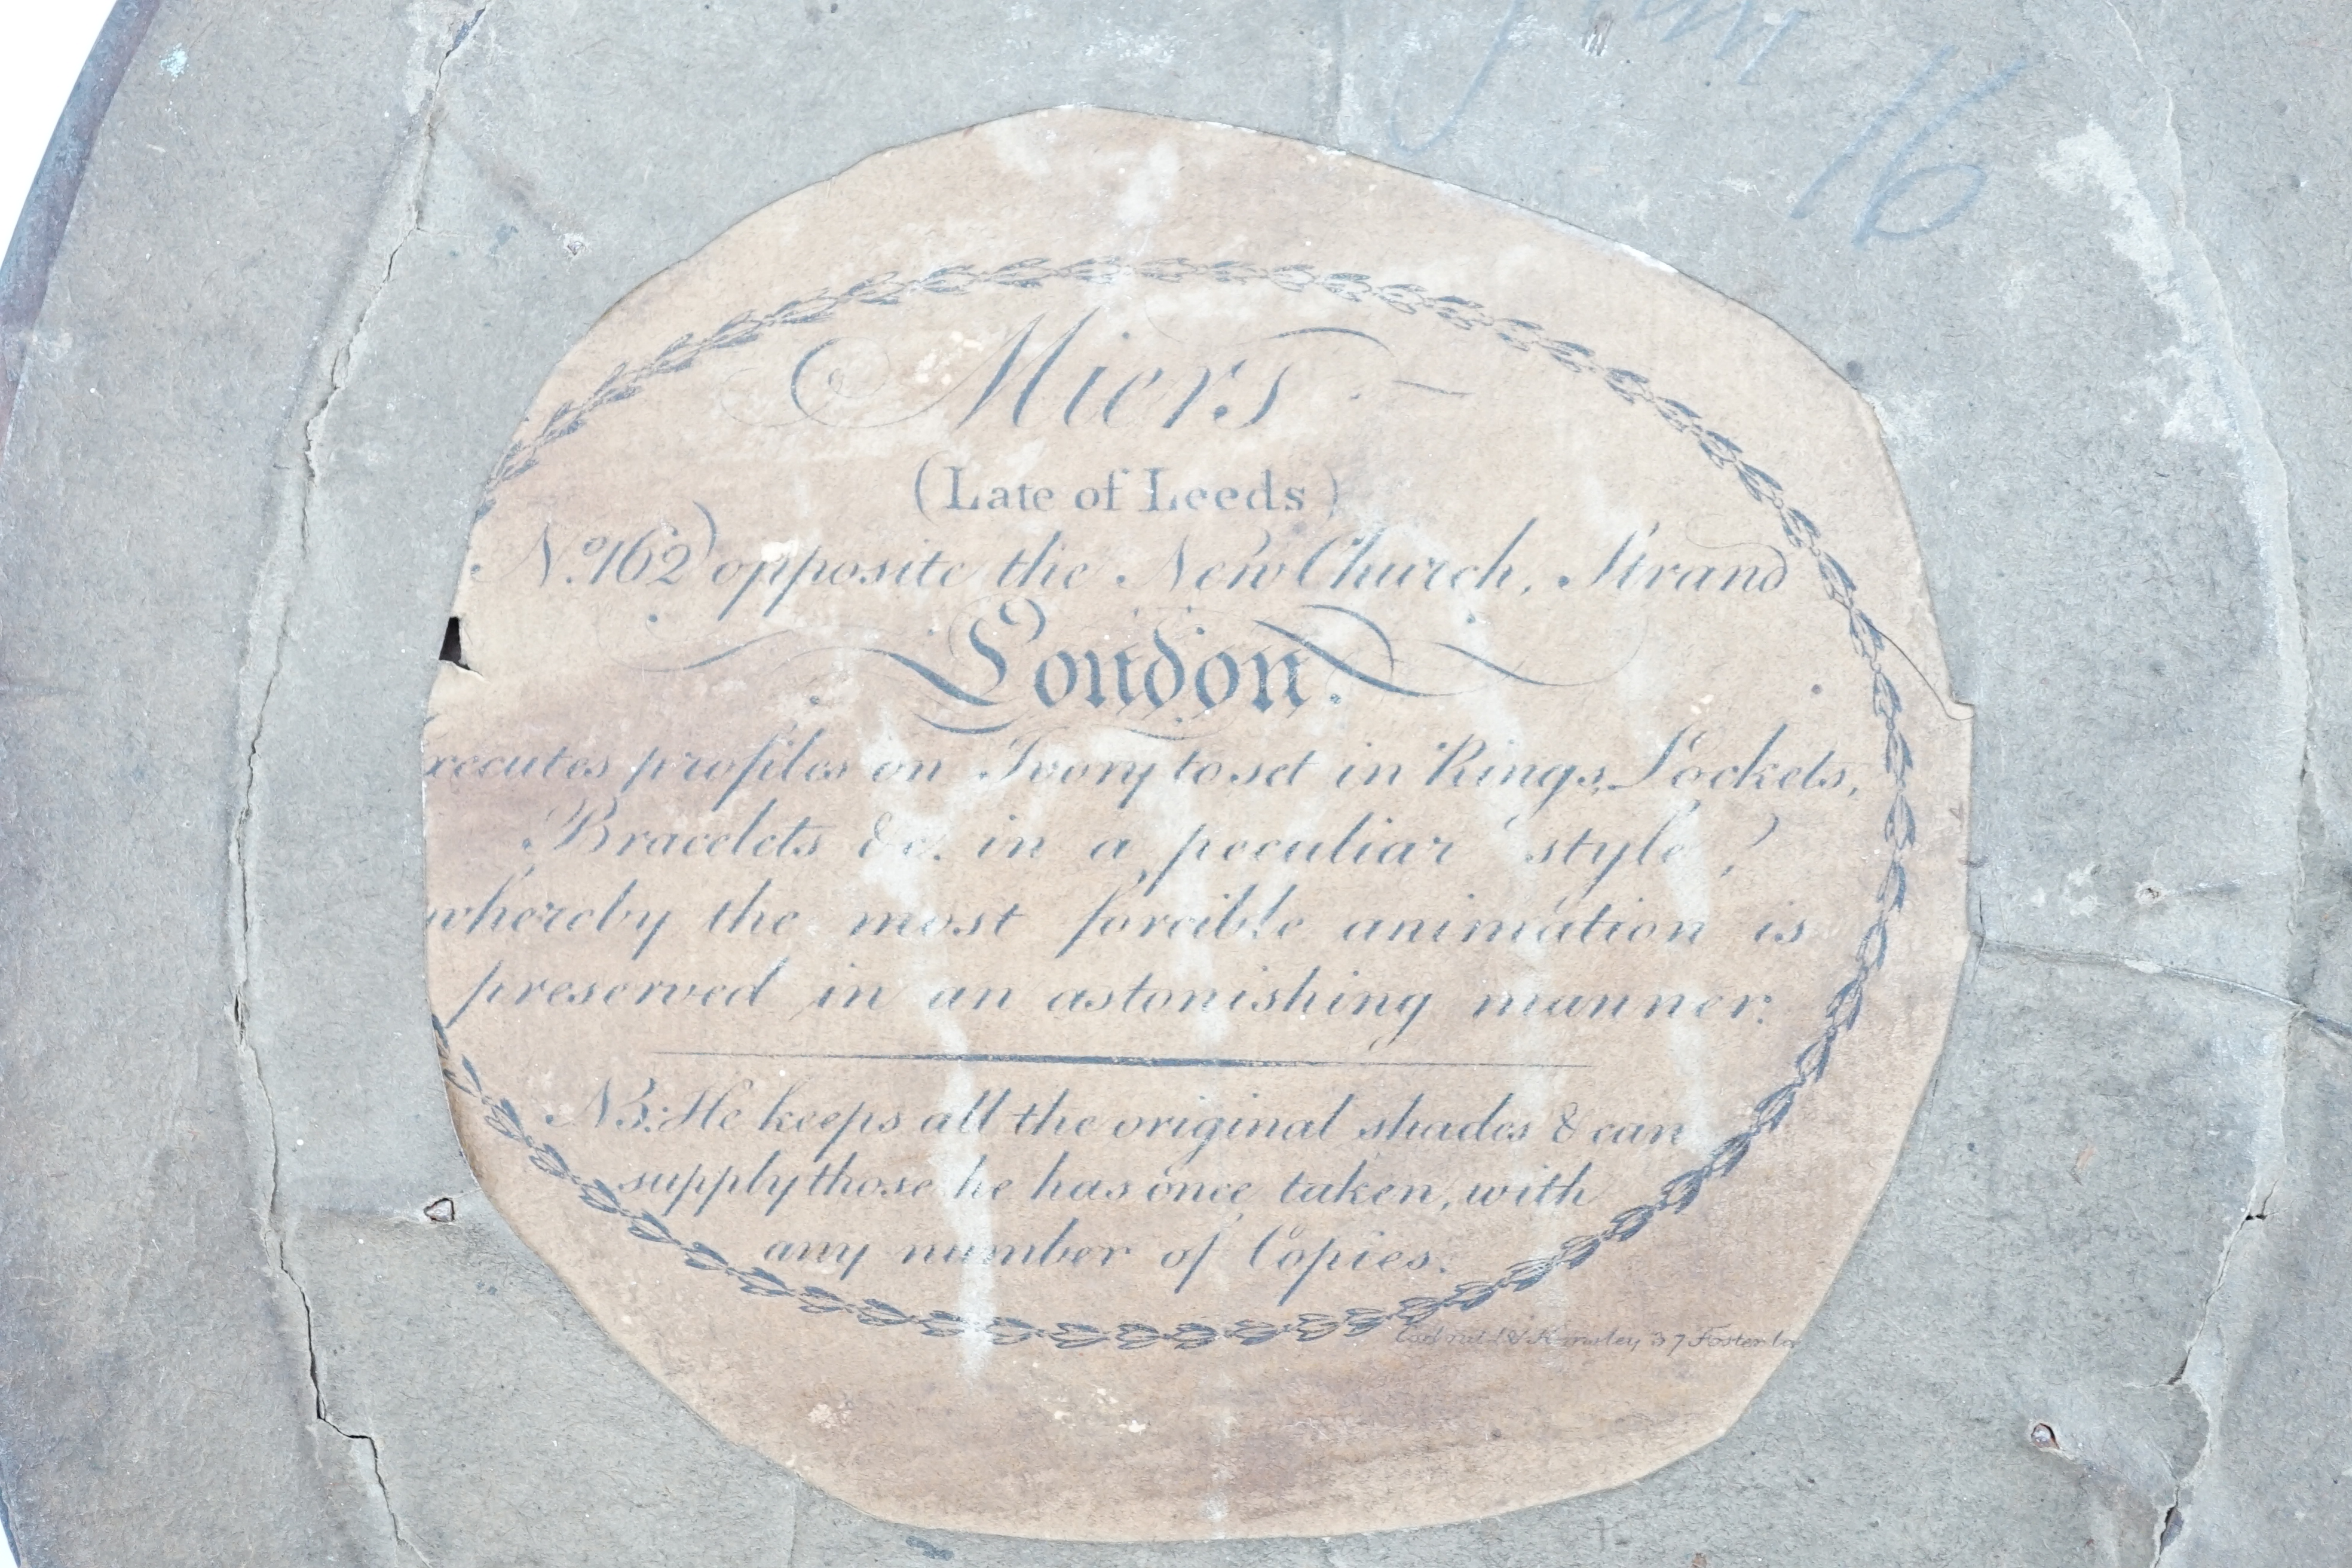 Miers
(Late of Leeds)
No. 162 opposite the New Church, Strand
London.
xecutes profiles on Ivory to set in Rings, Lockets,
Bracelets &c. in a peculiar style,
whereby the most forcible animation is
preserved in an astonishing manner.
NB: He keeps all the original shades & can
supply those he has once taken, with
any number of Copies.
37 Foster la